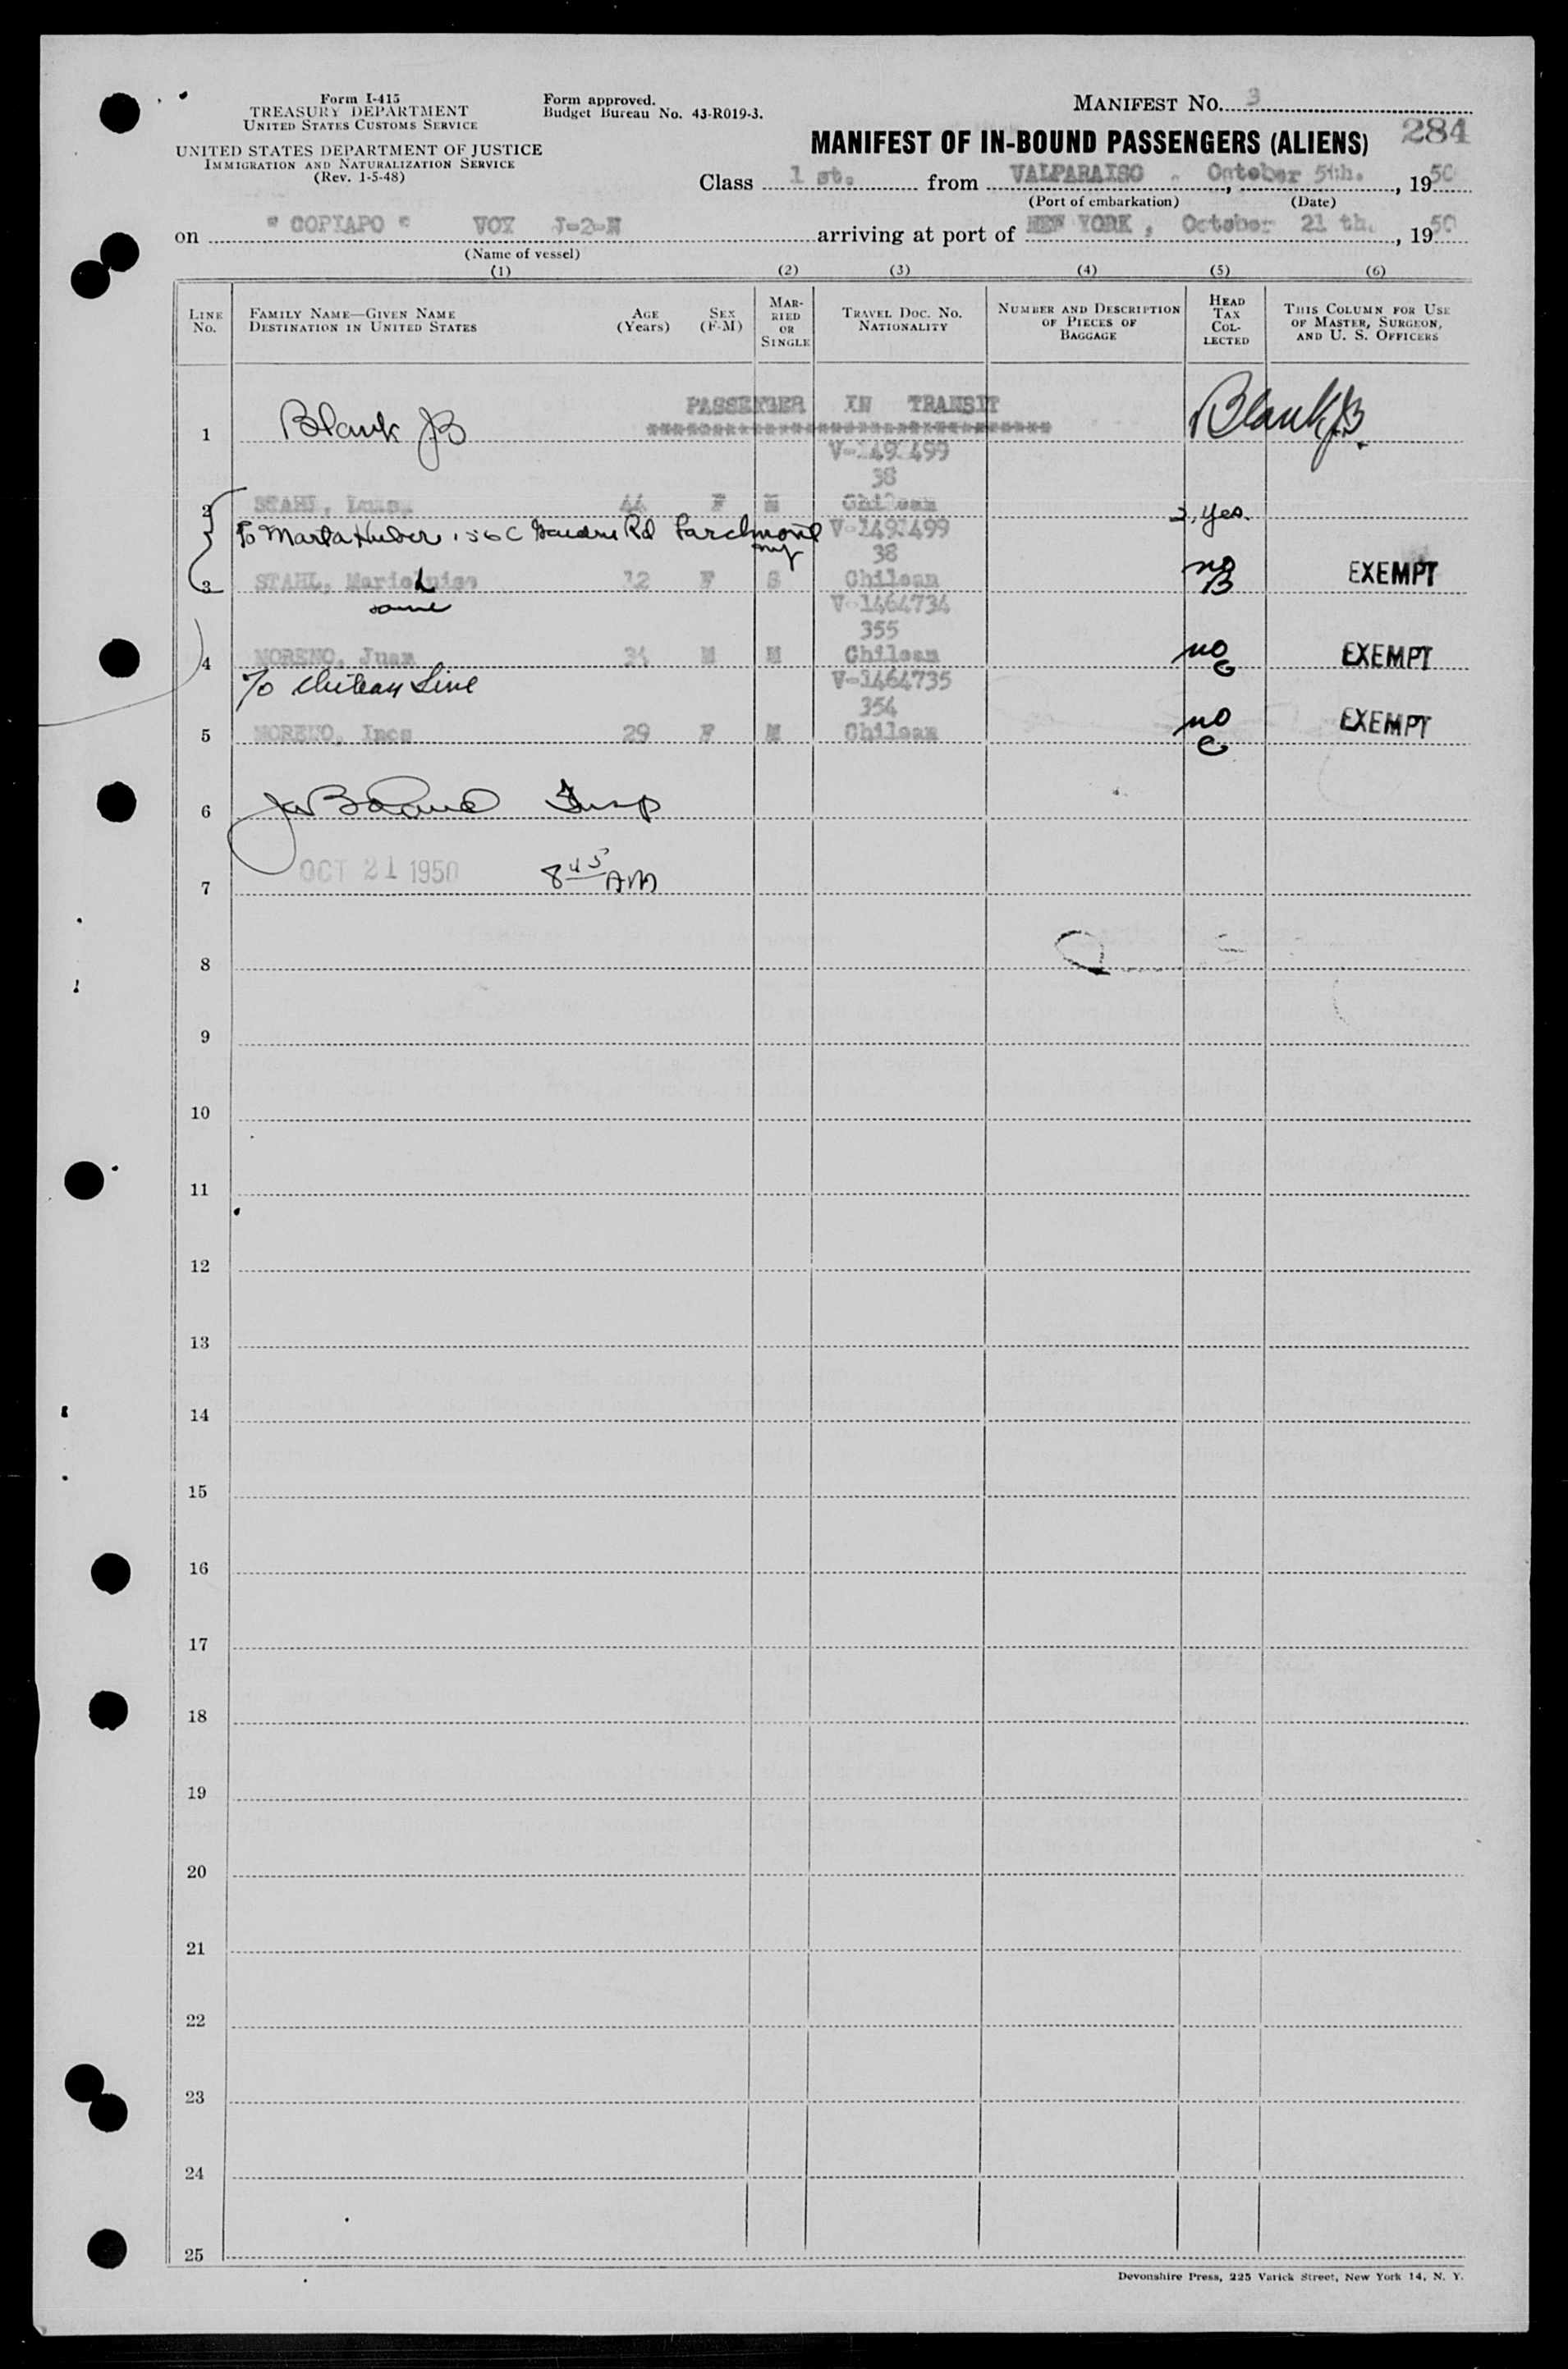 Form I-415
TREASURY DEPARTMENT
UNITED STATES CUSTOMS SERVICE
UNITED STATES DEPARTMENT OF JUSTICE
IMMIGRATION AND NATURALIZATION SERVICE
(Rev. 1-5-48)
Form approved.
Budget Bureau No. 43-R019-3.
MANIFEST NO. 3
MANIFEST OF IN-BOUND PASSENGERS (ALIENS) 284
Class 1 st. from VALPARAISO, October 5th., 1950
(Port of embarkation) (Date)
on " COPIAPO " VOY J-2-N arriving at port of NEW YORK, October 21 th., 1950
(Name of vessel)
(1) (2) (3) (4) (5) (6)
LINE NO. FAMILY NAME—GIVEN NAME DESTINATION IN UNITED STATES AGE (Years) SEX (F-M) MARRIED OR SINGLE TRAVEL DOC. NO. NATIONALITY NUMBER AND DESCRIPTION OF PIECES OF BAGGAGE HEAD TAX COLLECTED THIS COLUMN FOR USE OF MASTER, SURGEON, AND U. S. OFFICERS
PASSENGER IN TRANSIT
1 Blank JB Blank JB
V-1491499
38
2 STAHL, 44 F M Chilean yes.
To Marta Huber Rd Larchmont NY V-1491499
38
3 STAHL, Marie Luise 12 F S Chilean no B EXEMPT
same V-1464734
355
4 MORENO, Juan 34 M M Chilean no C EXEMPT
c/o Chilean Line V-1464735
354
5 MORENO, Ines 29 F M Chilean no C EXEMPT
6 Insp
7 OCT 21 1950 8 45 AM
8
9
10
11
12
13
14
15
16
17
18
19
20
21
22
23
24
25
Devonshire Press, 225 Varick Street, New York 14, N. Y.